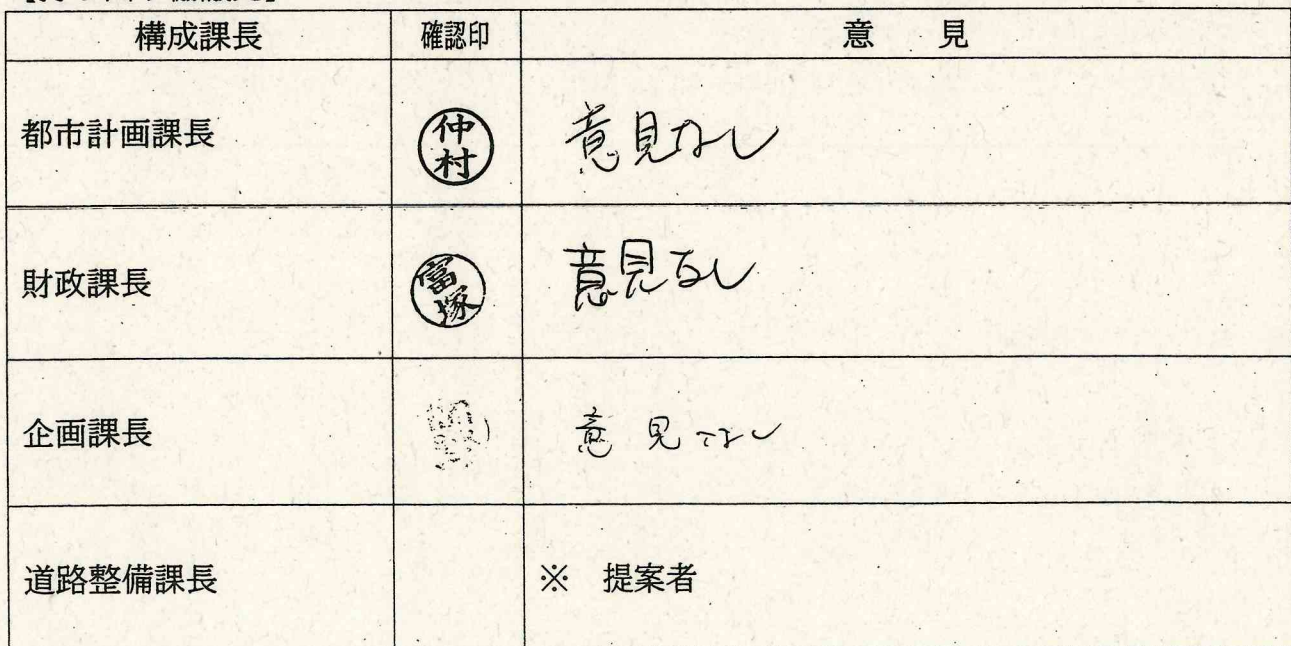 構成課長 確認印 意 見
都市計画課長 仲村 意見なし
財政課長 富塚 意見なし
企画課長 意見なし
道路整備課長 ※ 提案者